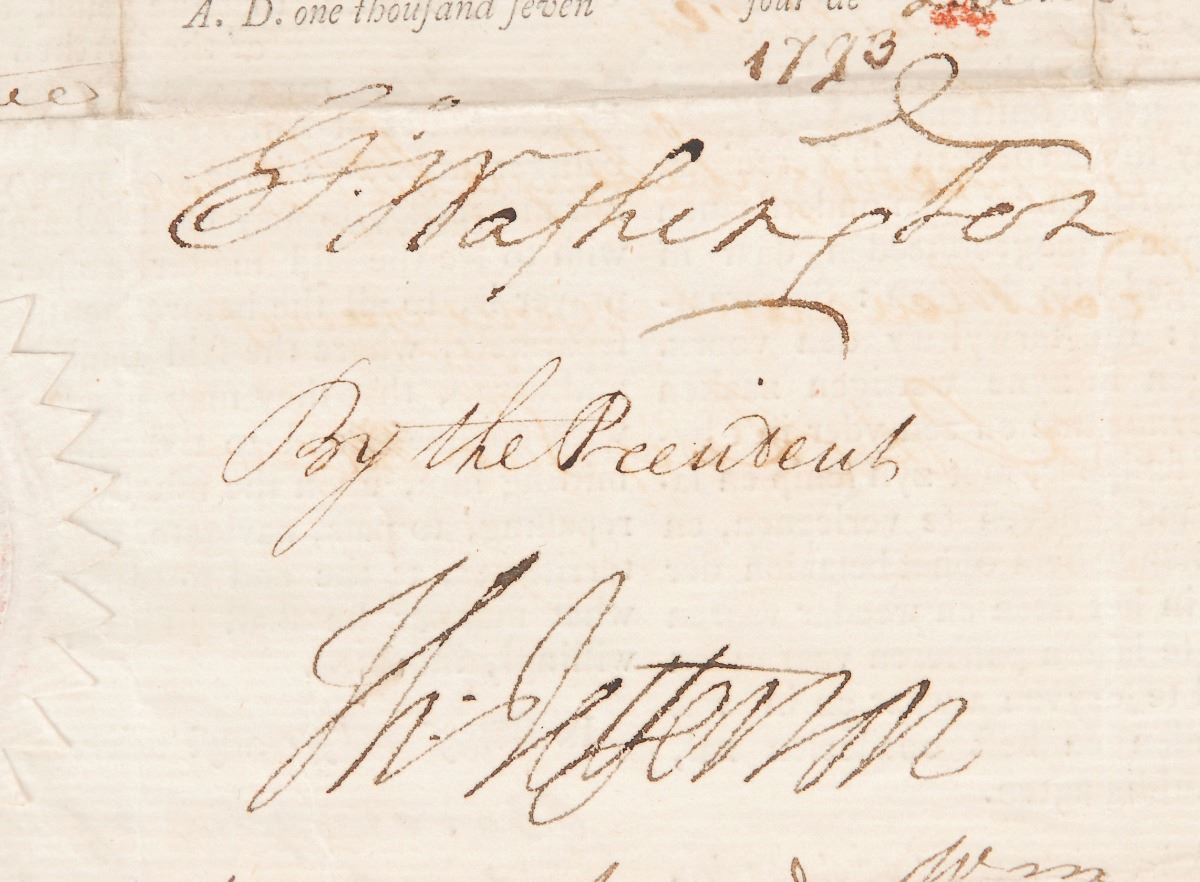 A. D. one thouſand ſeven jour de
1793
G:Washington
By the President
Th: Jefferson
Wm